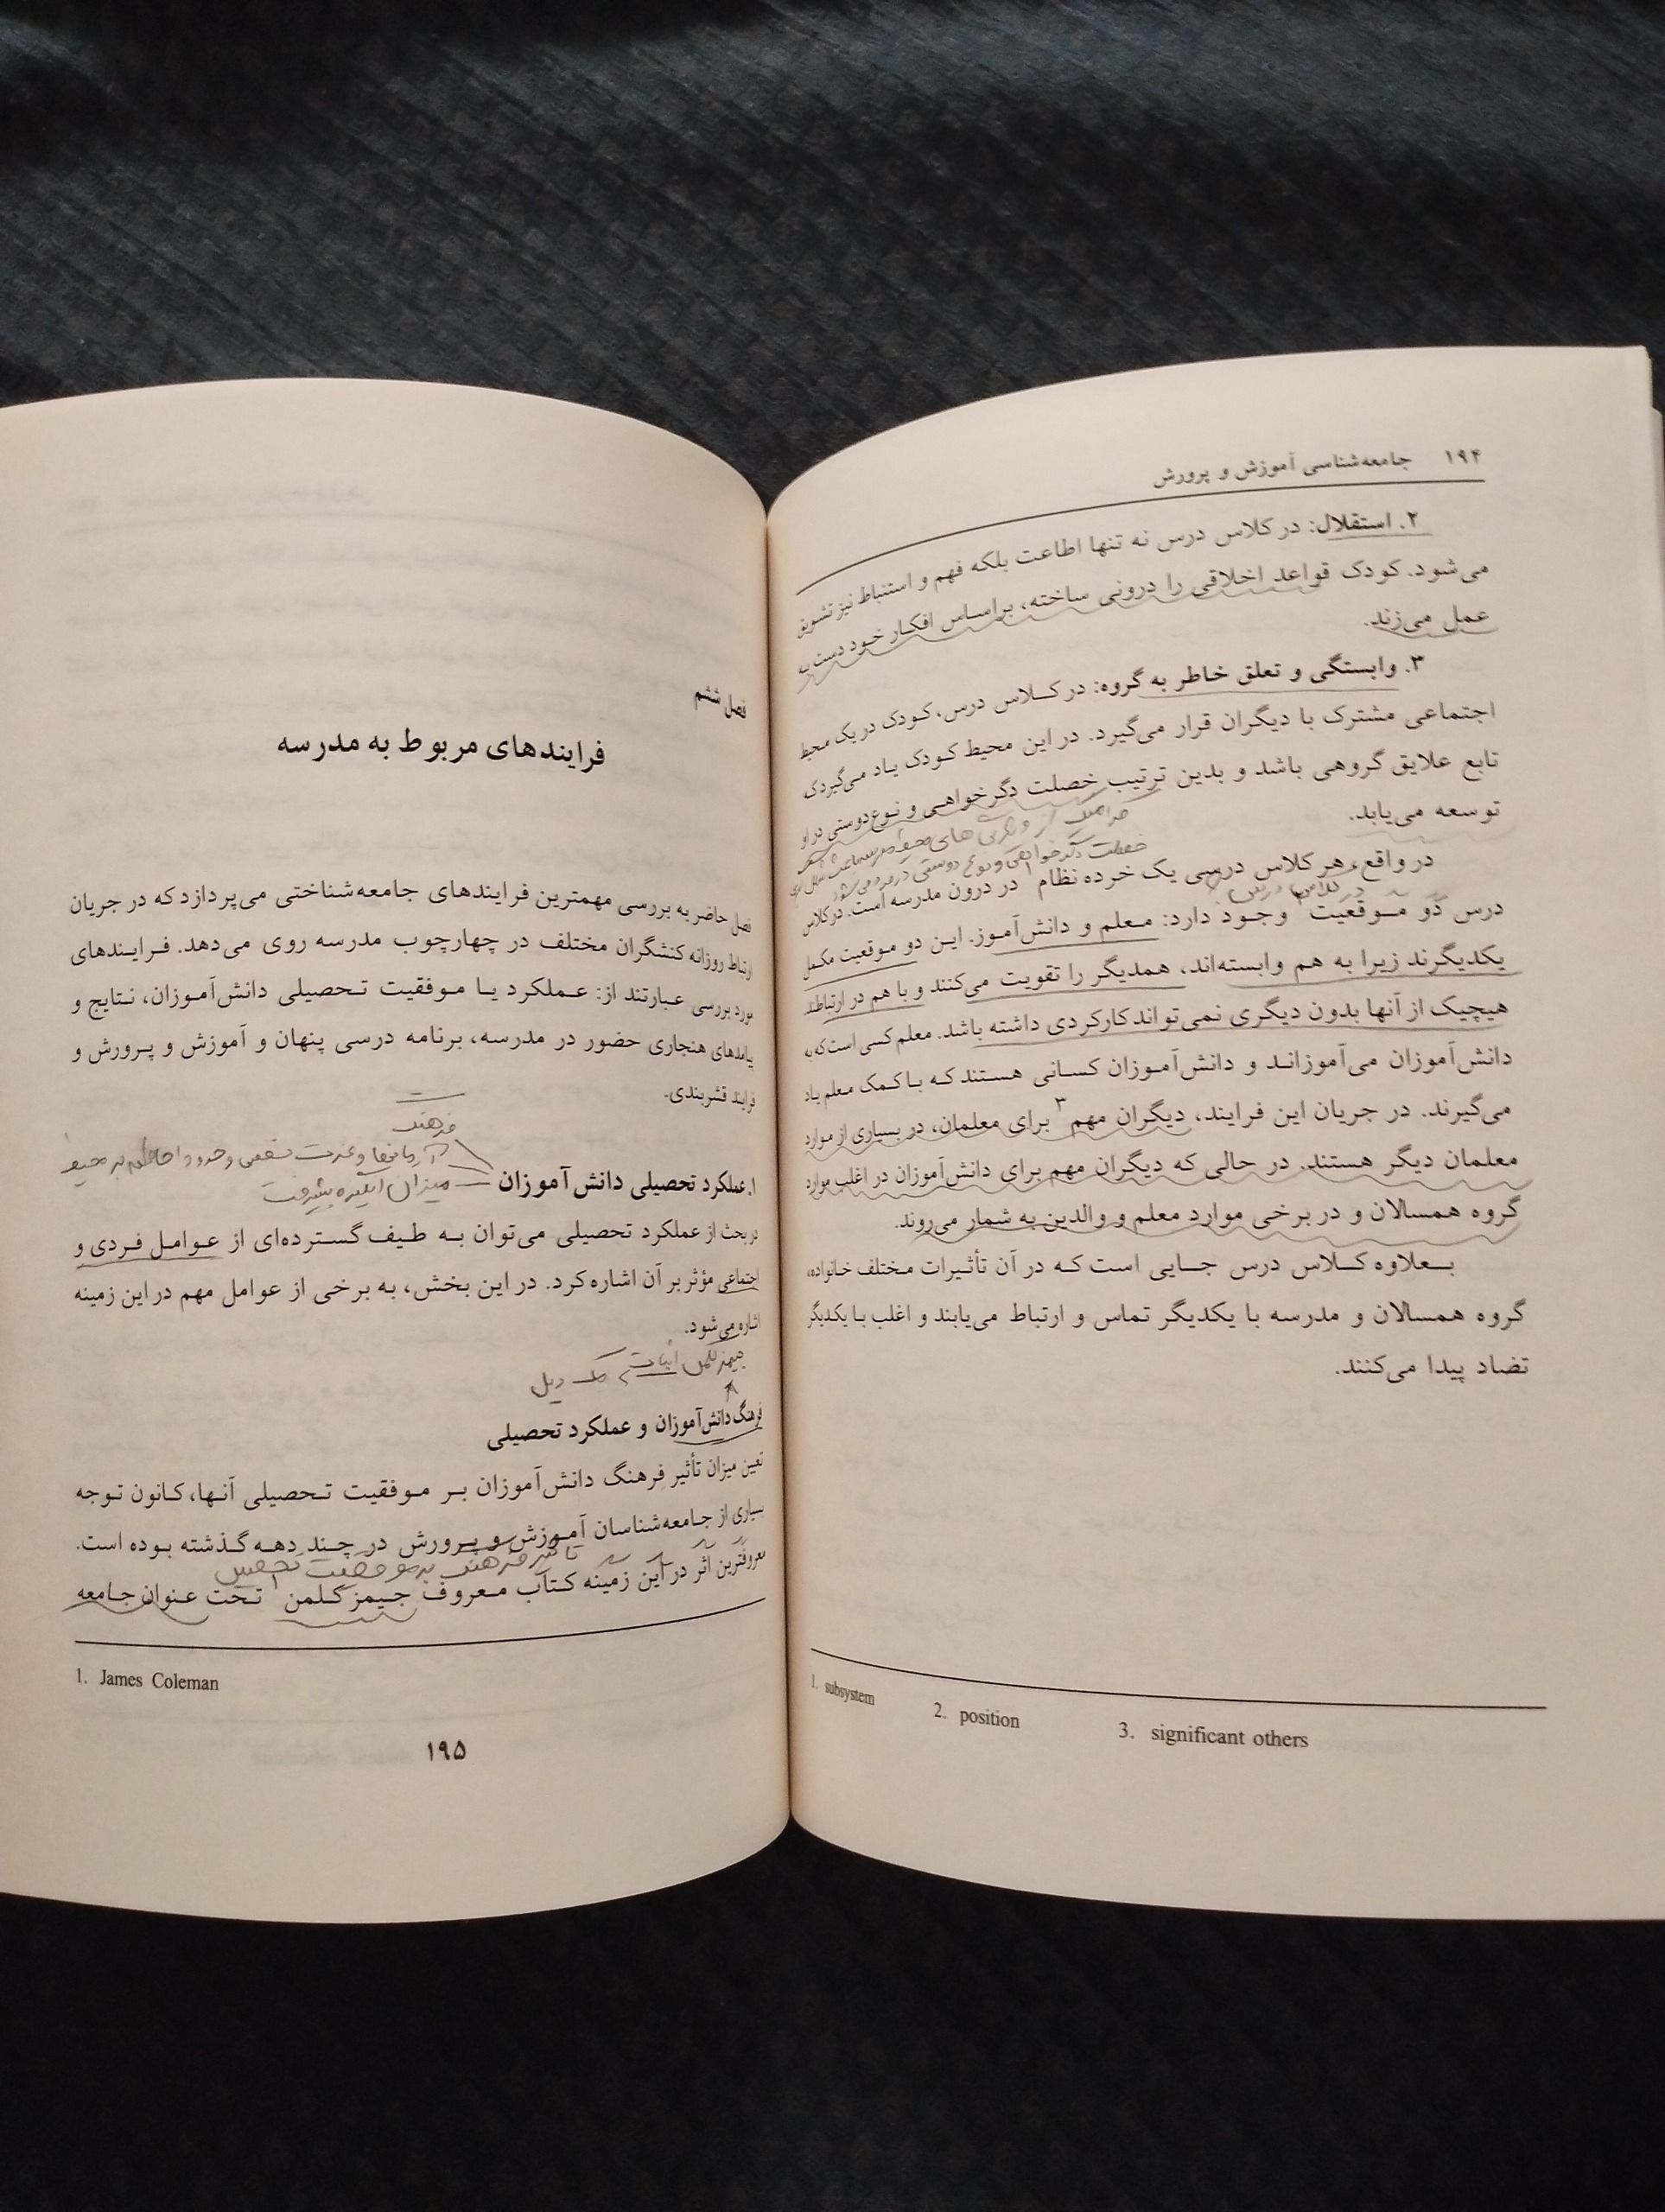 ۱۹۴ جامعه‌شناسی آموزش و پرورش
۲. استقلال: در کلاس درس نه تنها اطاعت بلکه فهم و استنباط نیز تشویق
می‌شود. کودک قواعد اخلاقی را درونی ساخته، براساس افکار خود دست به
عمل می‌زند.
۳. وابستگی و تعلق خاطر به گروه: در کلاس درس، کودک در یک محیط
اجتماعی مشترک با دیگران قرار می‌گیرد. در این محیط کودک یاد می‌گیرد که
تابع علایق گروهی باشد و بدین ترتیب خصلت دگرخواهی و نوع‌دوستی در او
توسعه می‌یابد.
خصلت دگرخواهی و نوع دوستی در
در واقع، هر کلاس درسی یک خرده نظام۱ در درون مدرسه است. در کلاس
در کلاس درس
درس دو موقعیت۲ وجود دارد: معلم و دانش‌آموز. این دو موقعیت مکمل
یکدیگرند زیرا به هم وابسته‌اند، همدیگر را تقویت می‌کنند و با هم در ارتباطند
هیچیک از آنها بدون دیگری نمی‌تواند کارکردی داشته باشد. معلم کسی است که به
دانش‌آموزان می‌آموزاند و دانش‌آموزان کسانی هستند که با کمک معلم یاد
می‌گیرند. در جریان این فرایند، دیگران مهم۳ برای معلمان، در بسیاری از موارد
معلمان دیگر هستند. در حالی که دیگران مهم برای دانش‌آموزان در اغلب موارد
گروه همسالان و در برخی موارد معلم و والدین به شمار می‌روند.
بعلاوه کلاس درس جایی است که در آن تأثیرات مختلف خانواده،
گروه همسالان و مدرسه با یکدیگر تماس و ارتباط می‌یابند و اغلب با یکدیگر
تضاد پیدا می‌کنند.
1. subsystem 2. position 3. significant others
فصل ششم
فرایندهای مربوط به مدرسه
فصل حاضر به بررسی مهمترین فرایندهای جامعه‌شناختی می‌پردازد که در جریان
ارتباط روزانه کنشگران مختلف در چهارچوب مدرسه روی می‌دهد. فرایندهای
مورد بررسی عبارتند از: عملکرد یا موفقیت تحصیلی دانش‌آموزان، نتایج و
پیامدهای هنجاری حضور در مدرسه، برنامه درسی پنهان و آموزش و پرورش و
فرایند قشربندی.
فرهنگ
۱. عملکرد تحصیلی دانش‌آموزان
میزان انگیزه پیشرفت
در بحث از عملکرد تحصیلی می‌توان به طیف گسترده‌ای از عوامل فردی و
اجتماعی مؤثر بر آن اشاره کرد. در این بخش، به برخی از عوامل مهم در این زمینه
اشاره می‌شود.
جیمز کلمن
فرهنگ دانش‌آموزان و عملکرد تحصیلی
تعیین میزان تأثیر فرهنگ دانش‌آموزان بر موفقیت تحصیلی آنها، کانون توجه
بسیاری از جامعه‌شناسان آموزش و پرورش در چند دهه گذشته بوده است.
تاثیر فرهنگ بر موفقیت تحصیلی
معروفترین اثر در این زمینه کتاب معروف جیمز کلمن۱ تحت عنوان جامعه
1. James Coleman
۱۹۵